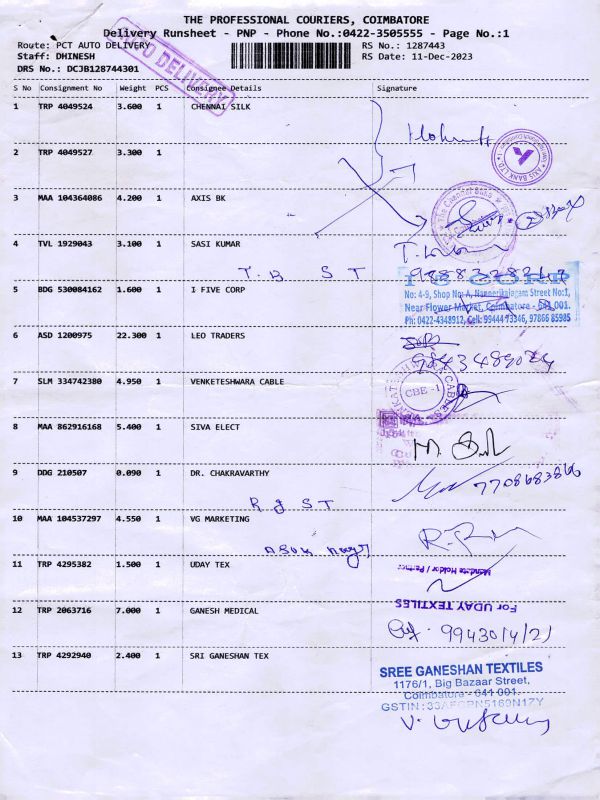 THE PROFESSIONAL COURIERS, COIMBATORE
Delivery Runsheet - PNP - Phone No.:0422-3505555 - Page No.:1
Route: PCT AUTO DELIVERY
Staff: DHINESH
DRS No.: DCJB128744301
RS No.: 1287443
RS Date: 11-Dec-2023
AUTO DELIVERY
S No Consignment No Weight PCS Consignee Details Signature
1 TRP 4049524 3.600 1 CHENNAI SILK
2 TRP 4049527 3.300 1
AXIS BANK LTD
3 MAA 104364086 4.200 1 AXIS BK
4 TVL 1929043 3.100 1 SASI KUMAR
T.B S T
5 BDG 530084162 1.600 1 I FIVE CORP
No: 4-9, Shop No: A, Street No:1,
Near Flower Market, Coimbatore - 641 001.
Ph: 0422-4348912, Cell: 99444 73346, 97866 85985
6 ASD 1200975 22.300 1 LEO TRADERS
7 SLM 334742380 4.950 1 VENKETESHWARA CABLE
CBE -1
8 MAA 862916168 5.400 1 SIVA ELECT
9 DDG 210507 0.090 1 DR. CHAKRAVARTHY
7708683866
R g S T
10 MAA 104537297 4.550 1 VG MARKETING
11 TRP 4295382 1.500 1 UDAY TEX
Mandate Holder / Partner
For UDAY TEXTILES
12 TRP 2063716 7.000 1 GANESH MEDICAL
13 TRP 4292940 2.400 1 SRI GANESHAN TEX
SREE GANESHAN TEXTILES
1176/1, Big Bazaar Street,
Coimbatore - 641 001.
GSTIN :